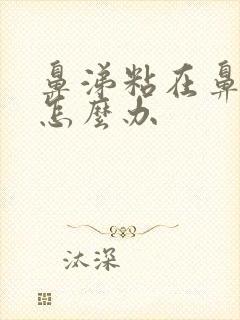 鼻涕粘在鼻
怎麼办
汰深